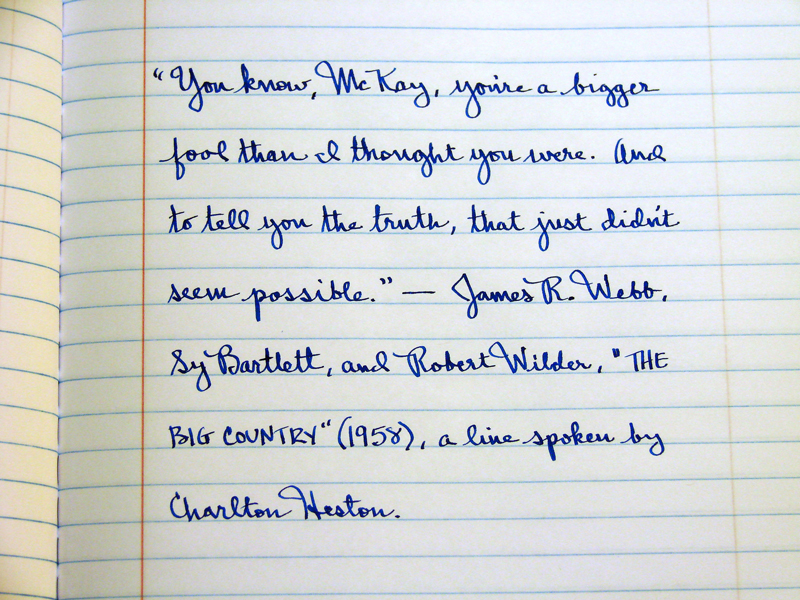 “You know, McKay, you're a bigger
fool than I thought you were. And
to tell you the truth, that just didn't
seem possible.” — James R. Webb,
Sy Bartlett, and Robert Wilder, "THE
BIG COUNTRY" (1958), a line spoken by
Charlton Heston.